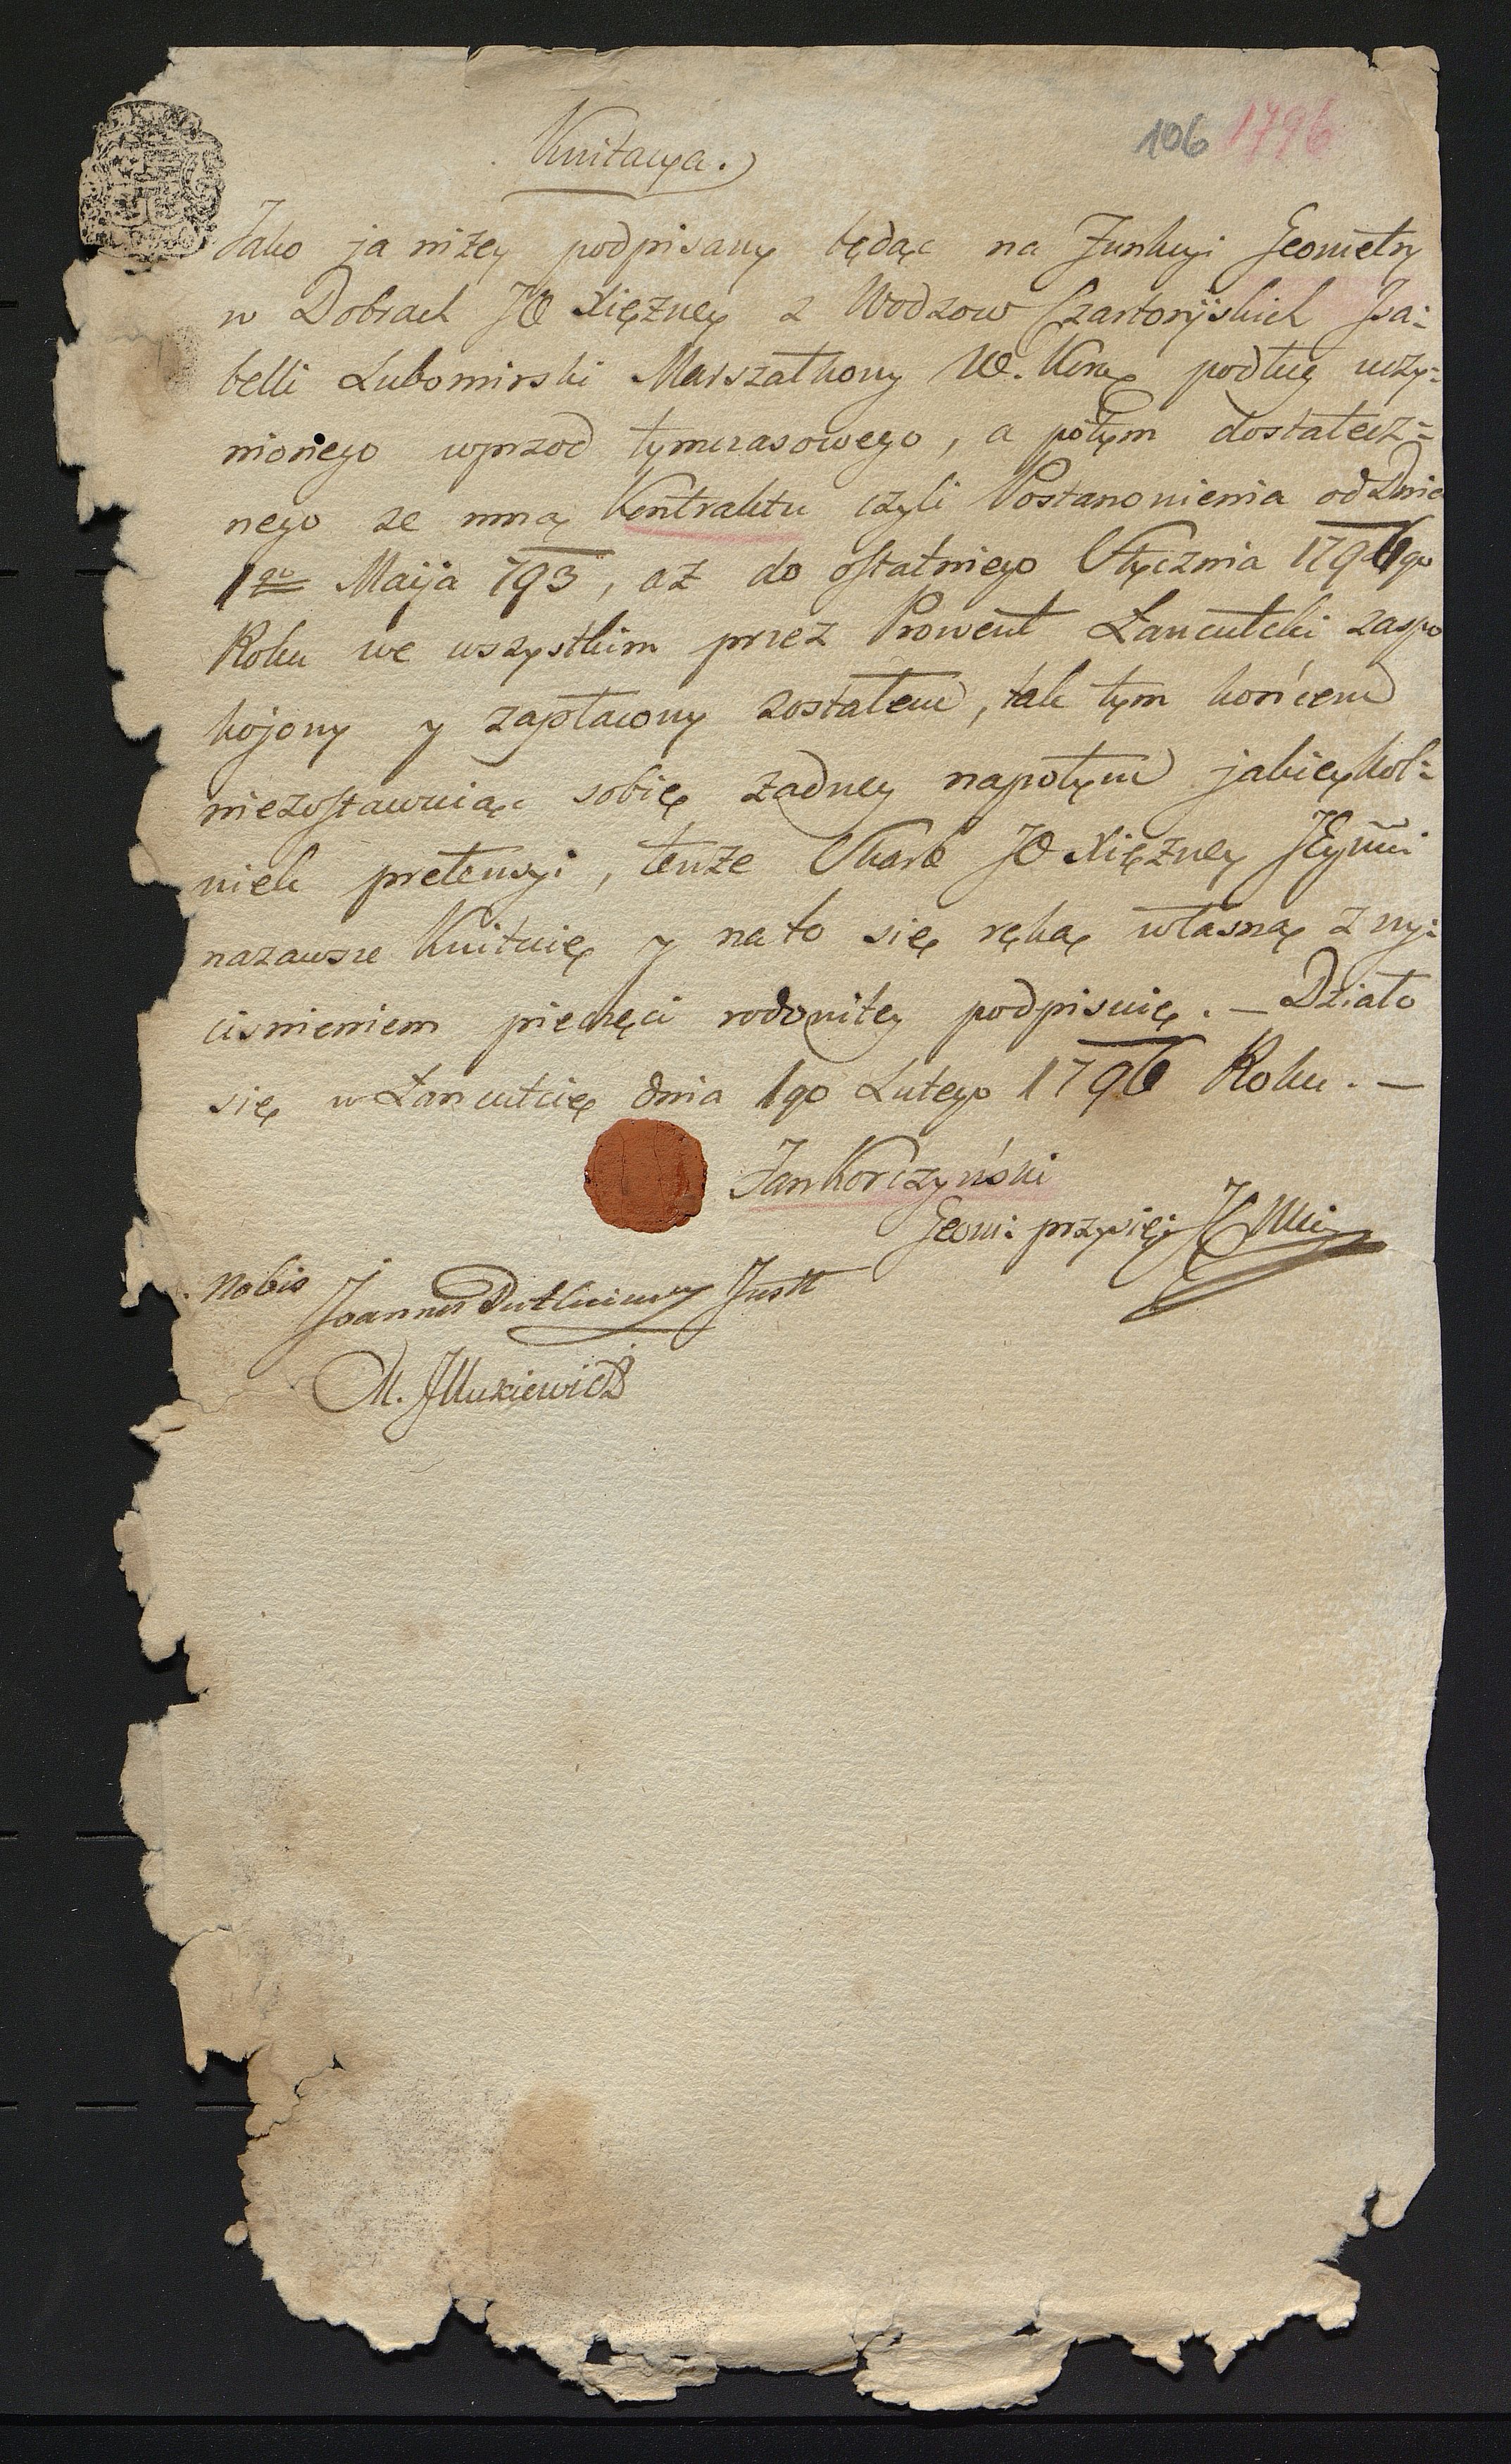 106 1796
Kwitacya.
Jako ja niżey podpisany będąc na Funkcyi Geometry
w Dobrach JO Xiężney z Wodzow Czartoryiskich Iza:
belli Lubomirski Marszałkowy W. Kor: podług uczy:
nionego wprzod tymczasowego, a potym dostatecz:
nego ze mną Kontraktu czyli Postanowienia od Dnia
1go Maija 793, aż do ostatniego Stycznia 1796go
Roku we wszystkim przez Prowent Łancutcki zaspo
kojony y zapłacony zostałem, tak tym końcem
niezostawuiąc sobię żadney napotym jakieykol:
wiek pretensyi, tenże Skarb JO Xiężney JEymci
nazawsze Kwituię y na to się ręką własną z wy:
ciśnieniem pieczęci rodowitey podpisuię. – Działo
się w Łancutcię dnia 1go Lutego 1796 Roku. –
Jan Korczyński
Geom: przysię:
Nobis Joannes Justt
M.